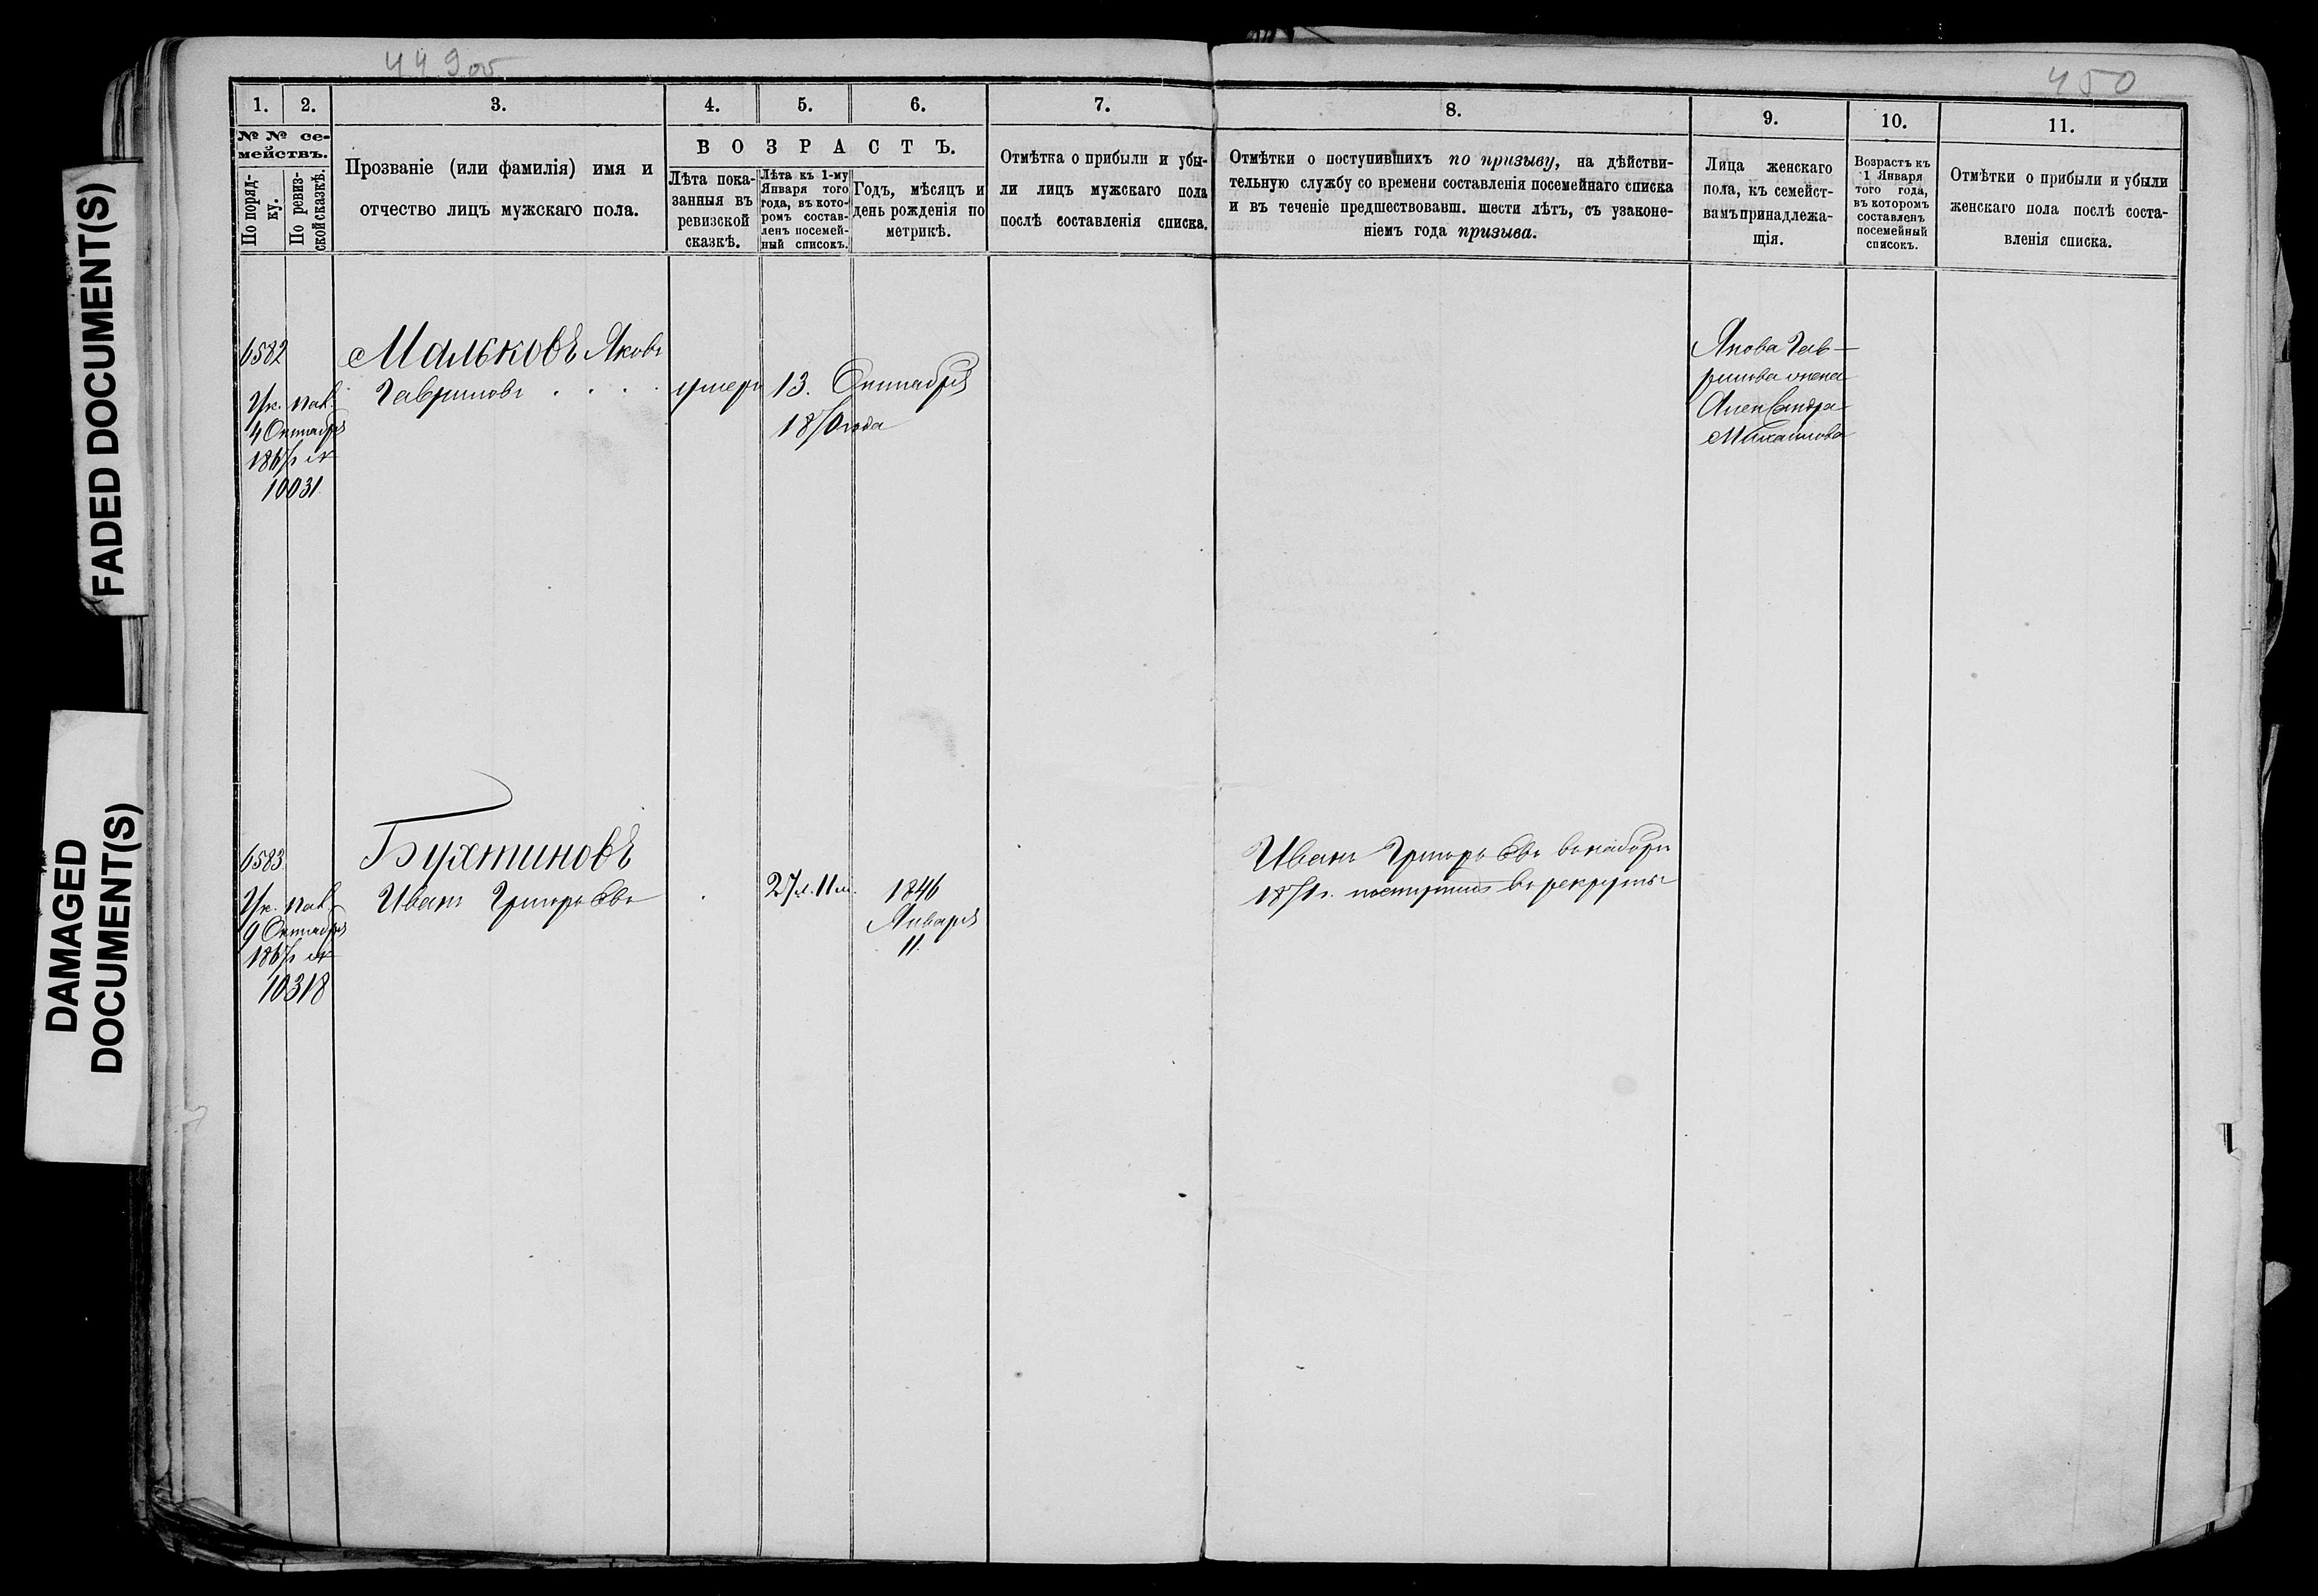 449об
450
FADED DOCUMENT(S)
DAMAGED
DOCUMENT(S)
1.
2.
3.
4.
5.
6.
7.
8.
9.
10.
11.
№ № се-
мействъ.
По поряд-
ку.
По ревиз-
ской сказкѣ.
Прозваніе (или фамилія) имя и
отчество лицъ мужскаго пола.
ВОЗРАСТЪ.
Лѣта пока-
занныя въ
ревизской
сказкѣ.
Лѣта къ 1-му
Января того
года, въ кото-
ромъ состав-
ленъ посемей-
ный списокъ.
Годъ, мѣсяцъ и
день рожденія по
метрикѣ.
Отмѣтка о прибыли и убы-
ли лицъ мужскаго пола
послѣ составленія списка.
Отмѣтки о поступившихъ по призыву, на дѣйстви-
тельную службу со времени составленія посемейнаго списка
и въ теченіе предшествовавш. шести лѣтъ, съ узаконе-
ніемъ года призыва.
Лица женскаго
пола, къ семейст-
вамъ принадлежа-
щія.
Возрастъ къ
1 Января
того года,
въ которомъ
составленъ
посемейный
списокъ.
Отмѣтки о прибыли и убыли
женскаго пола послѣ соста-
вленія списка.
6582
Ук. пал.
4 Октября
1867г №
10031
Мальковъ Яковъ
Гавриловъ . . . .
умеръ 13. Октября
1870 года
Якова Гав-
рилова жена
Александра
Михайлова
6583
Ук. пал.
9 Октября
1867г №
10318
Бухтиновъ
Иванъ Григорьевъ
27 л. 11 м.
1846
Января
11.
Иванъ Григорьевъ въ наборъ
1871г. поступилъ въ рекруты